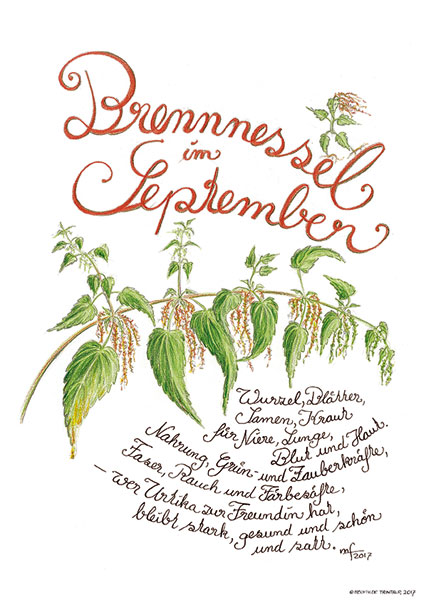 Brennnessel
im
September
Wurzel, Blätter,
Samen, Kraut
für Niere, Lunge,
Blut und Haut.
Nahrung, Grün- und Zauberkräfte,
Faser, Rauch und Färbesäfte,
– wer Urtika zur Freundin hat,
bleibt stark, gesund und schön
und satt. mf
2017
2017